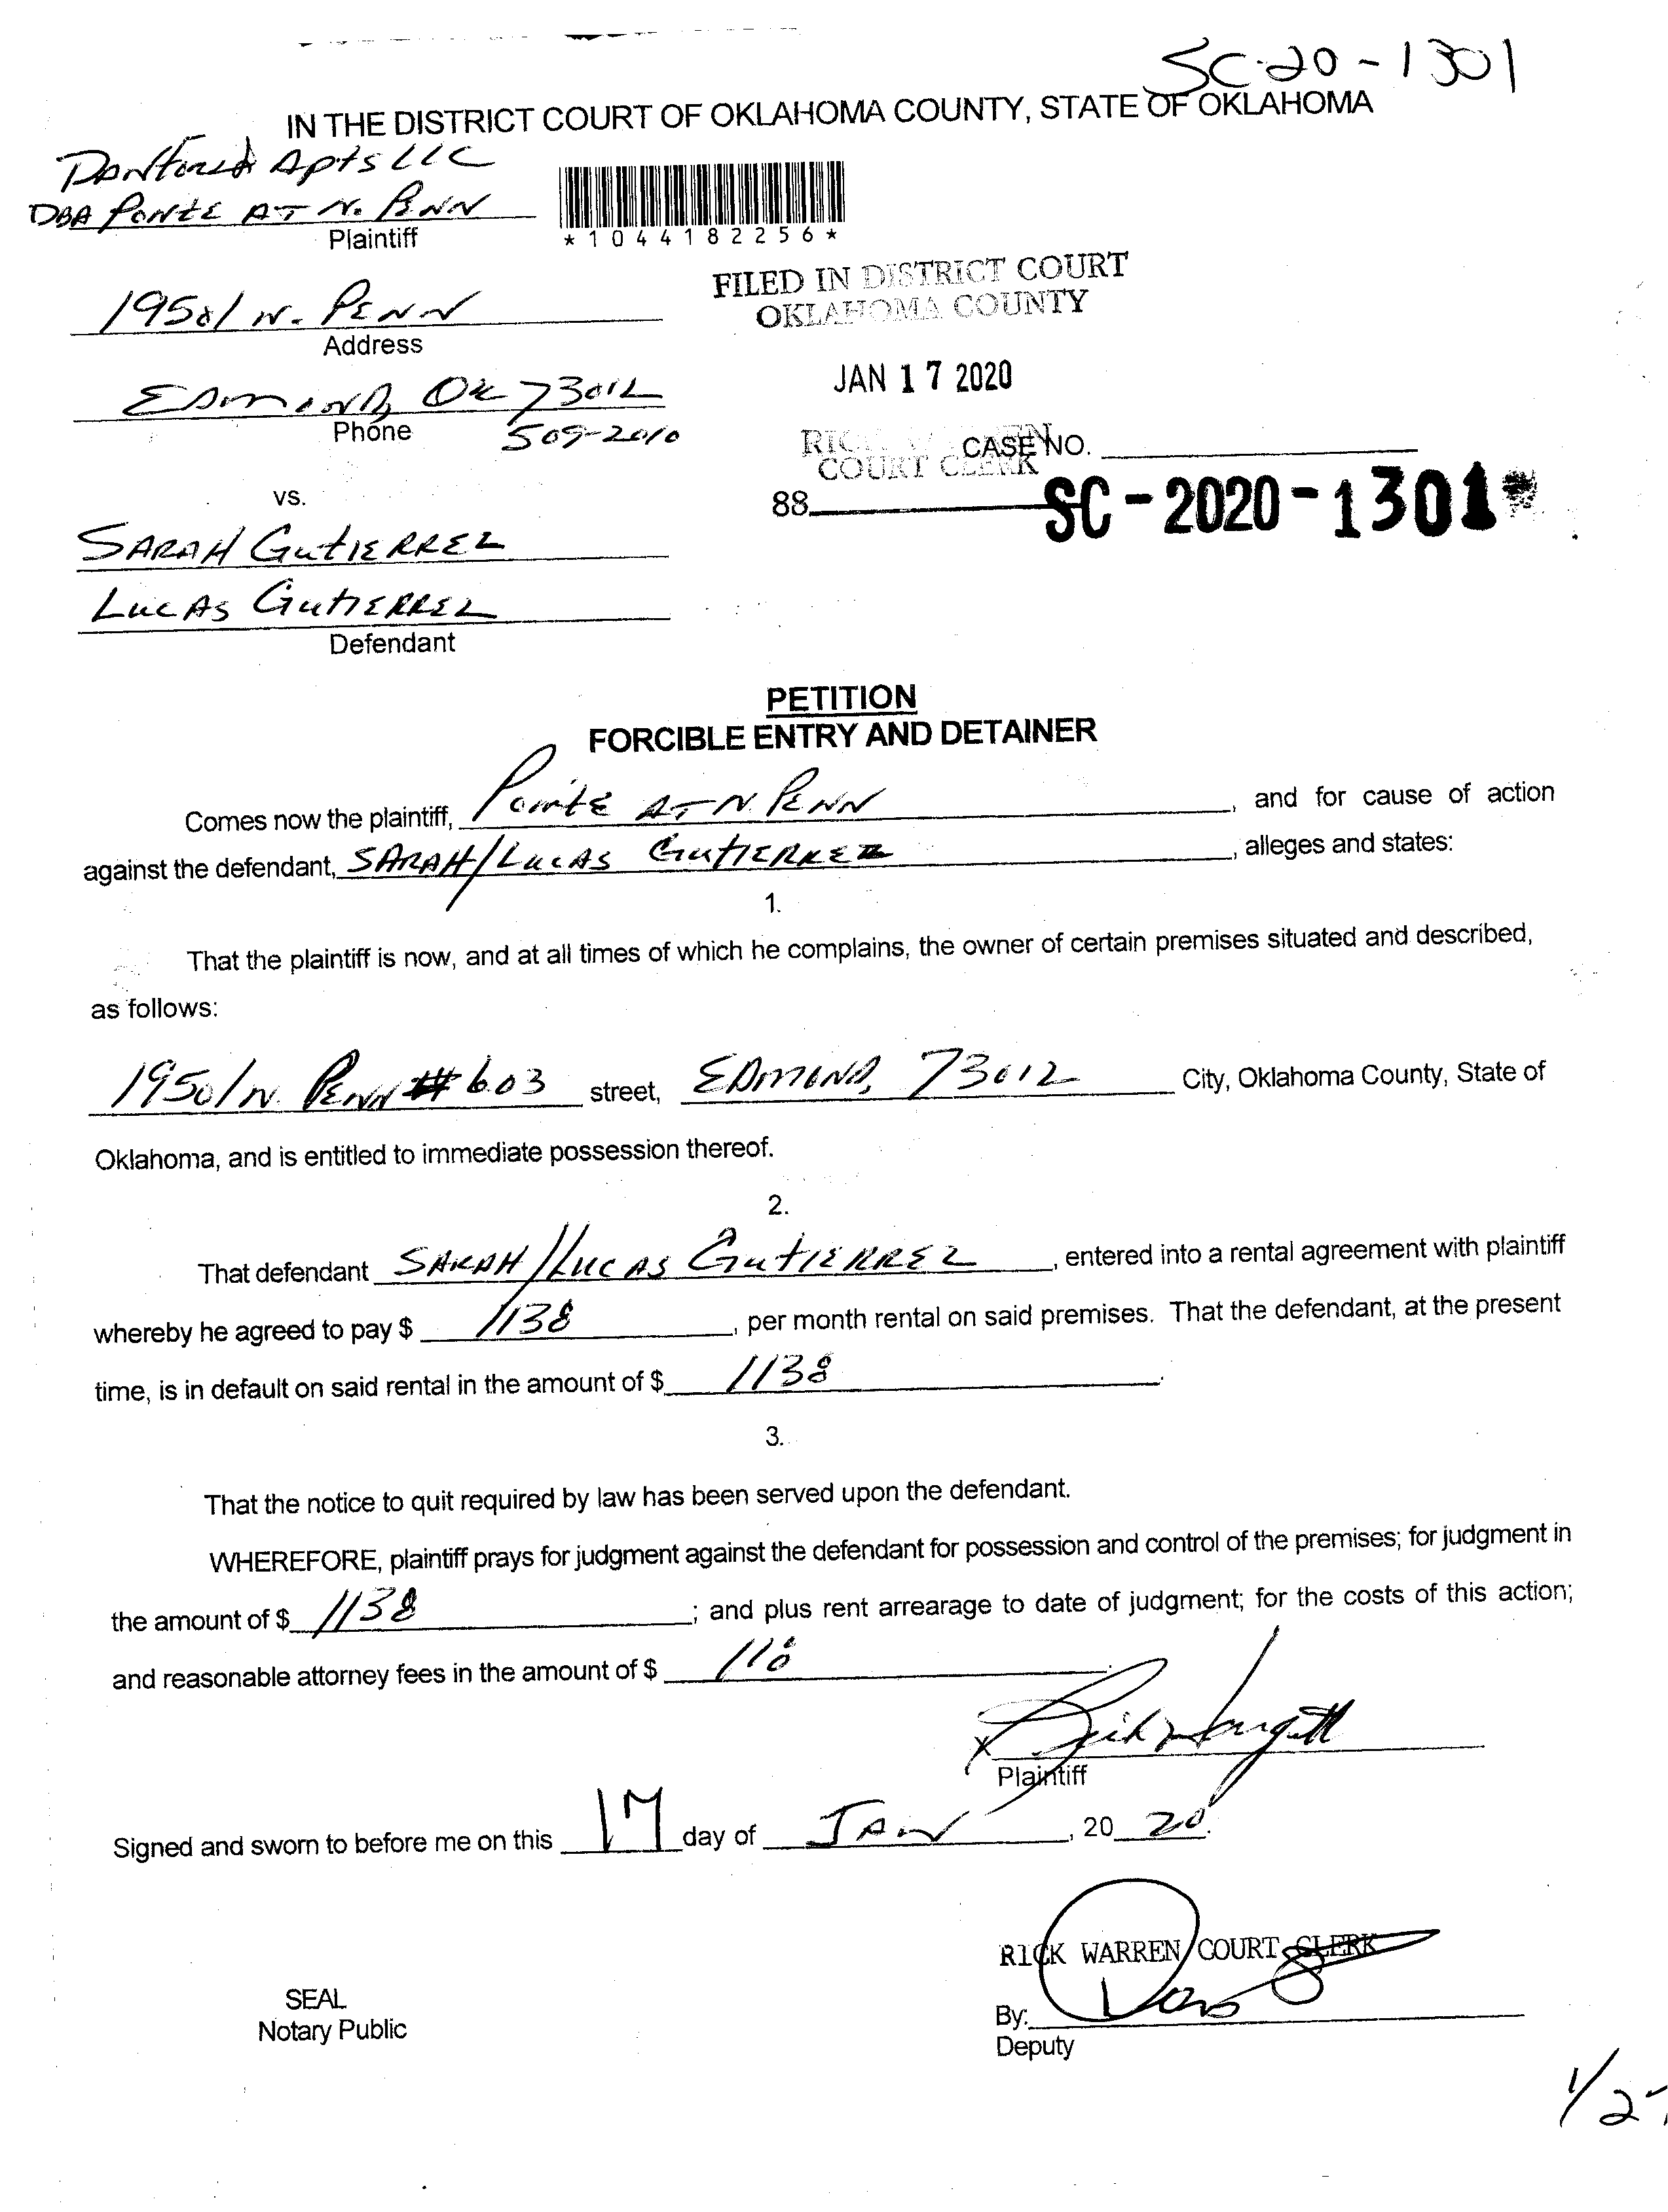 SC-20-1301
IN THE DISTRICT COURT OF OKLAHOMA COUNTY, STATE OF OKLAHOMA
Danforth Apts LLC
DBA Pointe AT N. Penn
Plaintiff
*1044182256*
FILED IN DISTRICT COURT
OKLAHOMA COUNTY
19501 N. Penn
Address
JAN 17 2020
Edmond, OK 73012
Phone 509-2010
RICK WARREN
COURT CLERK
CASE NO.
vs.
88 SC-2020-1301
SARAH GutIERREZ
LUCAS GutIERREZ
Defendant
PETITION
FORCIBLE ENTRY AND DETAINER
Comes now the plaintiff, Pointe AT N. Penn, and for cause of action
against the defendant, SARAH/LUCAS GutIERREZ, alleges and states:
1.
That the plaintiff is now, and at all times of which he complains, the owner of certain premises situated and described,
as follows:
19501 N. Penn #603 street, EDMOND, 73012 City, Oklahoma County, State of
Oklahoma, and is entitled to immediate possession thereof.
2.
That defendant SARAH/LUCAS GutIERREZ, entered into a rental agreement with plaintiff
whereby he agreed to pay $ 1138, per month rental on said premises. That the defendant, at the present
time, is in default on said rental in the amount of $ 1138.
3.
That the notice to quit required by law has been served upon the defendant.
WHEREFORE, plaintiff prays for judgment against the defendant for possession and control of the premises; for judgment in
the amount of $ 1138; and plus rent arrearage to date of judgment; for the costs of this action;
and reasonable attorney fees in the amount of $
X
Plaintiff
Signed and sworn to before me on this 17 day of JAN, 20 20.
RICK WARREN COURT CLERK
SEAL
Notary Public
By:
Deputy